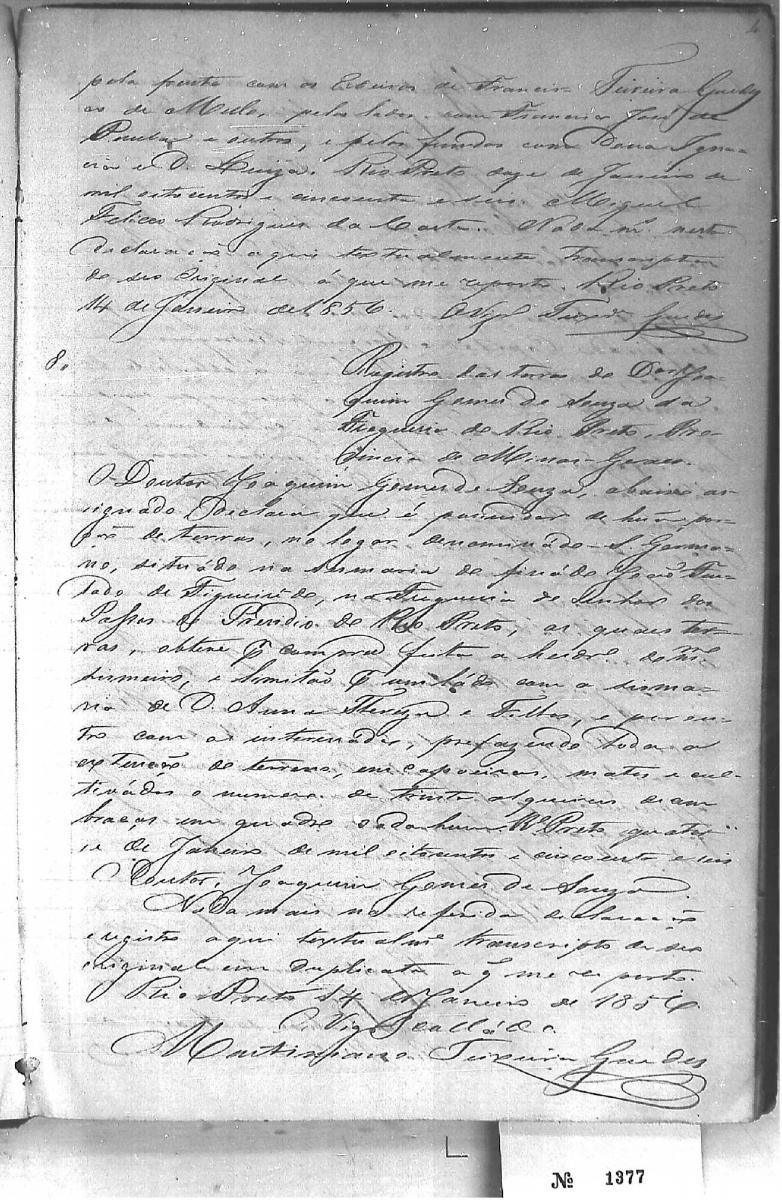 4
pela frente com os Erdeiros de Francis- Teixeira Guedes
co de Mello, pelos lados com Francisco José de
e outros, e pelos fundos com Dona Igna-
cia e D. Luiza. Rio Preto doze de Janeiro de
mil oitocentos e cincoenta e seis. Miguel
Felicio Rodrigues da Costa. Nada m.s nesta
declaraçaõ aqui textualmente transcripta
do seo Original á que me reporto. Rio Preto
14 de Janeiro de 1856. O Vig.o Teixr.a Guedes
8.
Registro das terras do Dor Joa-
quim Gomes de Souza da
Freguesia do Rio Preto, Pro-
vincia de Minas Geraes.
O Doutor Joaquim Gomes de Souza, abaixo as-
signado Declara que é possuidor de huã por-
çaõ de terras, no logar denominado S. Germa-
no, situádo na sesmaria do finádo Joaõ Fur-
tado de Figueirêdo, na Freguesia do Senhor dos
Passos do Presidio do Rio Preto, as quaes ter-
ras, obteve p compra feita a herdr.os do m.mo
sismeiro, e limitaõ p um ládo com a sisma-
ria de D. Anna Thereza e Filhos, e por ou-
tro com os interessados, prefazendo toda a
extençaõ de terreno, em capoeiras, matos e cul-
tivádos o numero de trinta alqueires de cem
braças em quadro cada hum. R.o Preto quator-
se de Janeiro de mil oitocentos e cincoenta e seis
Doutor, Joaquim Gomes de Souza.
Nada mais na referida declaraçaõ
e registro aqui textualm.e transcripto do seo
original em duplicata a q me reporto.
Rio Preto 14 de Janeiro de 1856.
O Vig.o Colládo.
Martiniano Teixeira Guedes
№ 1377